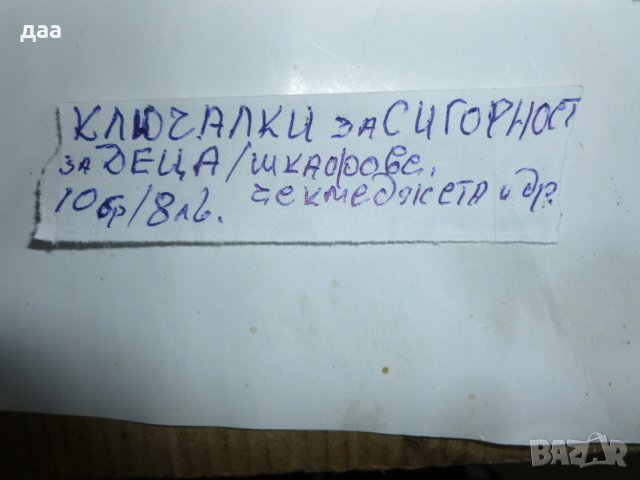 даа
КЛЮЧАЛКИ за СИГОРНОСТ
за ДЕЦА/шкафове,
10бр/8лв. чекмеджета и др.
BAZAR